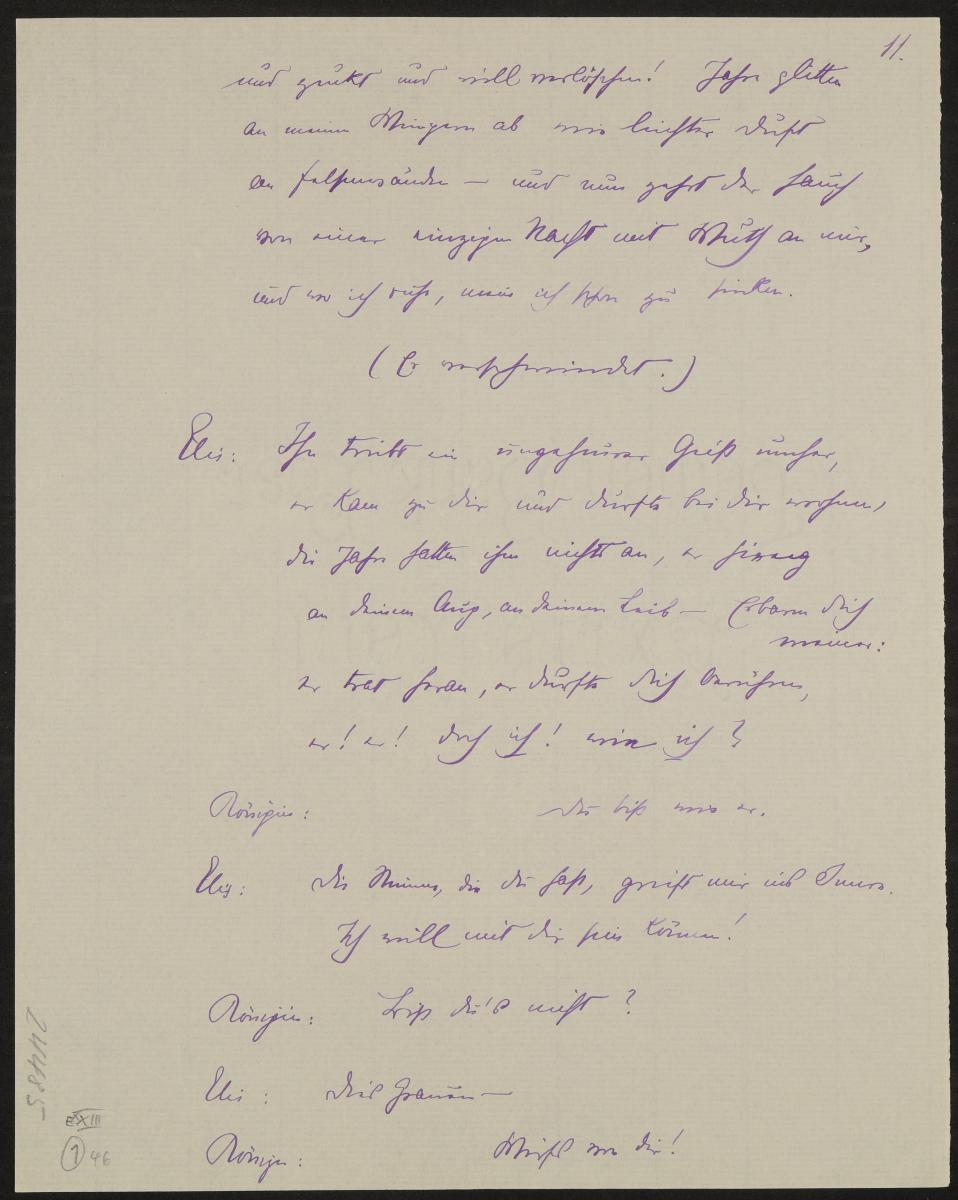 11.
und zuckt und will verlöschen! Jahre glitten
an meinen Wimpern ab wie leichter Duft
an Felsenwänden — und nun zehrt der Hauch
von einer einzigen Nacht mit Wuth an mir,
und wo ich ruhe, mein ich schon zu sinken.
(Er verschwindet.)
Elis: Ihn treibt ein ungeheurer Geist umher,
er kam zu dir und durfte bei dir wohnen,
die Jahre hatten ihm nichts an, er hieng
an deinem Aug, an deinem Leib — Erbarm dich
meiner:
er trat heran, er durfte dich berühren,
er! er! doch ich! wie ich?
Königin: Du bist was er.
Elis: Die Stimme, die du hast, greift mir ins Innere.
Ich will mit dir sein können!
Königin: Bist du's nicht?
Elis: Dies Grauen —
Königin: Wirf's von dir!
24485
EXIII
1 46